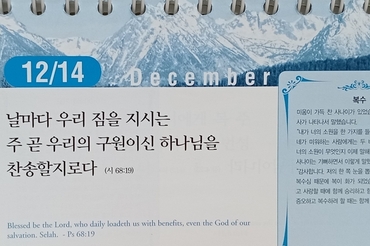 12/14
December
날마다 우리 짐을 지시는
주 곧 우리의 구원이신 하나님을
찬송할지로다 (시 68:19)
Blessed be the Lord, who daily loadeth us with benefits, even the God of our
salvation. Selah. - Ps 68:19
복수
미움이 가득 찬 사나이가 있었
사가 나타나서 말했습니다.
"내가 너의 소원을 한 가지를 들
네가 미워하는 사람에게는 두 배
너의 소원이 무엇인지 이제 말해
사나이는 기뻐하면서 이렇게 말
"감사합니다. 저의 한 쪽 눈을 뽑
복수심 때문에 복이 화가 되었습
고 사랑할 때 함께 승리하고 함
증오하고 복수하려 할 때는 함께